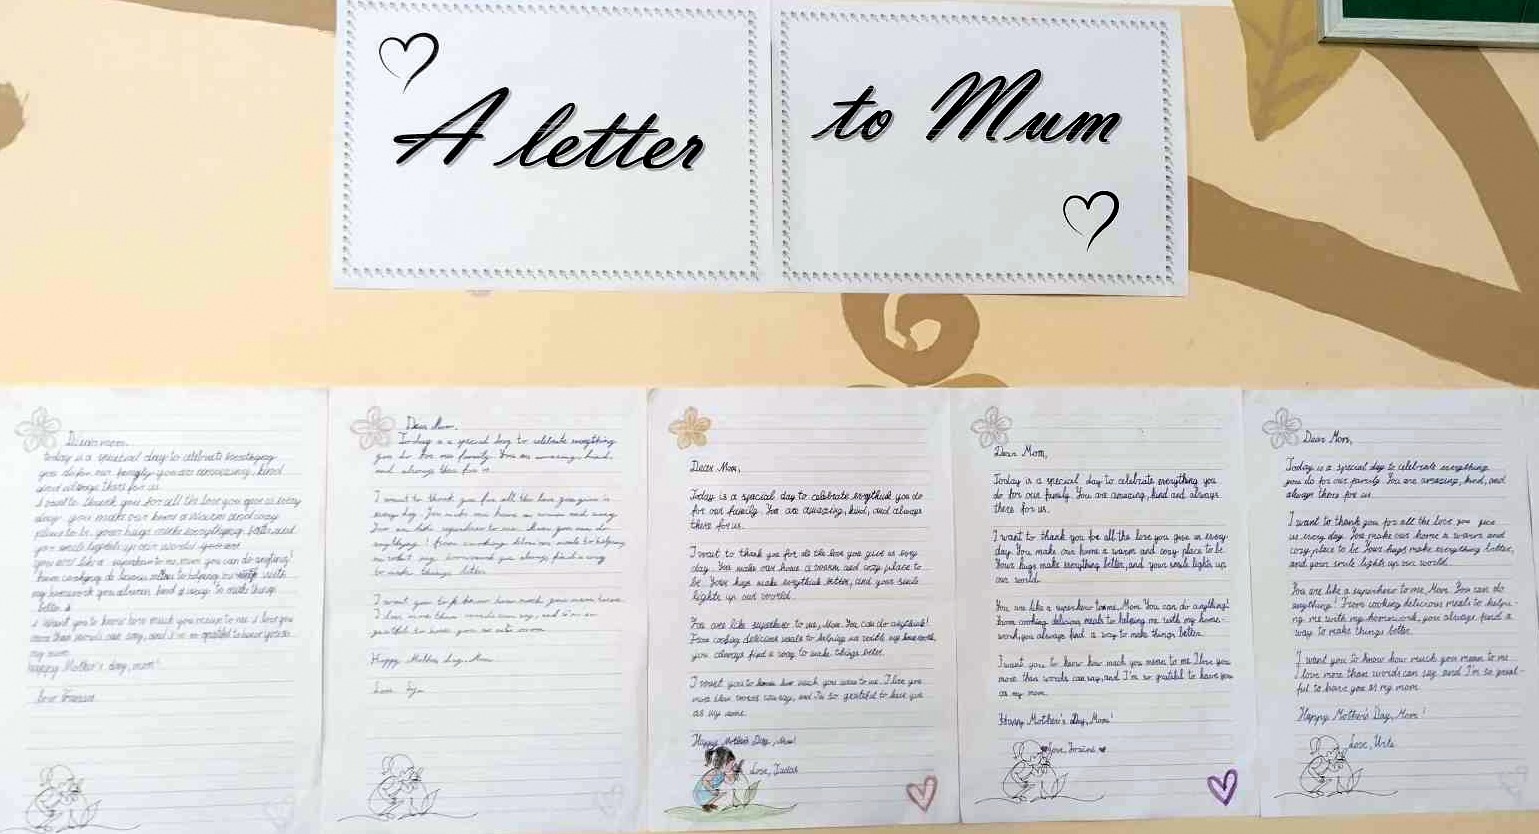 A letter to Mum
Dear mom,
today is a special day to celebrate
you do for our you are amazing, kind
and always there for us
I want to thank you for all the love you give us every
day. you make our home a warm and cozy
place to be. your hugs make everything
you smile lights up our world
you are like a superhero to me, mom you can do anything!
from cooking to helping me with
my homework you always find a way to make things
better
I want you to know how much you mean to me I love you
more than words can say, and I'm so grateful to have you as
my mom
happy Mother's day, mom!
love
Dear Mum,
Today is a special day to celebrate everything
you do for our family. You are amazing, kind,
and always there for us
I want to thank you for all the love you give us
every day. You make our home a warm and cozy
You are like superhero to me. Mom you can do
anything! From cooking delicious meals to helping
me with my homework you always find a way
to make things better
I want you to know how much you mean to me
I love more than words can say, and I'm so
grateful to have you as my mom
Happy Mothers day, Mum
Love
Dear Mom,
Today is a special day to celebrate you do
for our family. You are amazing, kind, and always
there for us.
I want to thank you for all the love you give us every
day. You make our home a warm and cozy place to
be. Your hugs make better, and your smile
lights up our world.
You are like superhero to me, Mom. You can do
From cooking delicious meals to helping us with my homework,
you always find a way to make things better.
I want you to know how much you mean to me. I love you
more than words can say, and I'm so grateful to have you
as my mom.
Happy Mother's Day, Mom!
Love,
Dear Mom,
Today is a special day to celebrate everything you
do for our family. You are amazing, kind and always
there for us.
I want to thank you for all the love you give us every
day. You make our home a warm and cozy place to be.
Your hugs make everything better, and your smile lights up
our world.
You are like a superhero to me, Mom. You can do anything!
From cooking delicious meals to helping me with my home-
work, you always find a way to make things better.
I want you to know how much you mean to me. I love you
more than words can say, and I'm so grateful to have you
as my mom.
Happy Mother's Day, Mom!
Love,
Dear Mom,
Today is a special day to celebrate everything
you do for our family. You are amazing, kind, and
always there for us.
I want to thank you for all the love you give
us every day. You make our home a warm and
cozy place to be. Your hugs make everything better,
and your smile lights up our world.
You are like a superhero to me, Mom. You can do
anything! From cooking delicious meals to helpi-
ng me with my homework, you always find a
way to make things better.
I want you to know how much you mean to me
I love more than words can say and I'm so grate-
ful to have you as my mom
Happy Mother's Day, Mom!
Love, Urte